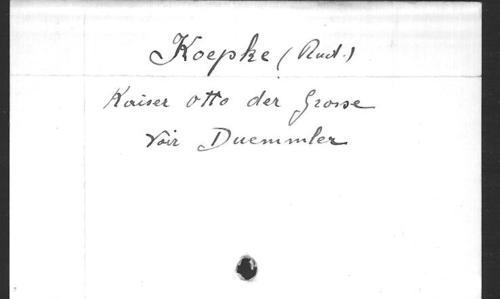 Koepke (Rud.)
Kaiser Otto der Grosse
Voir Duemmler